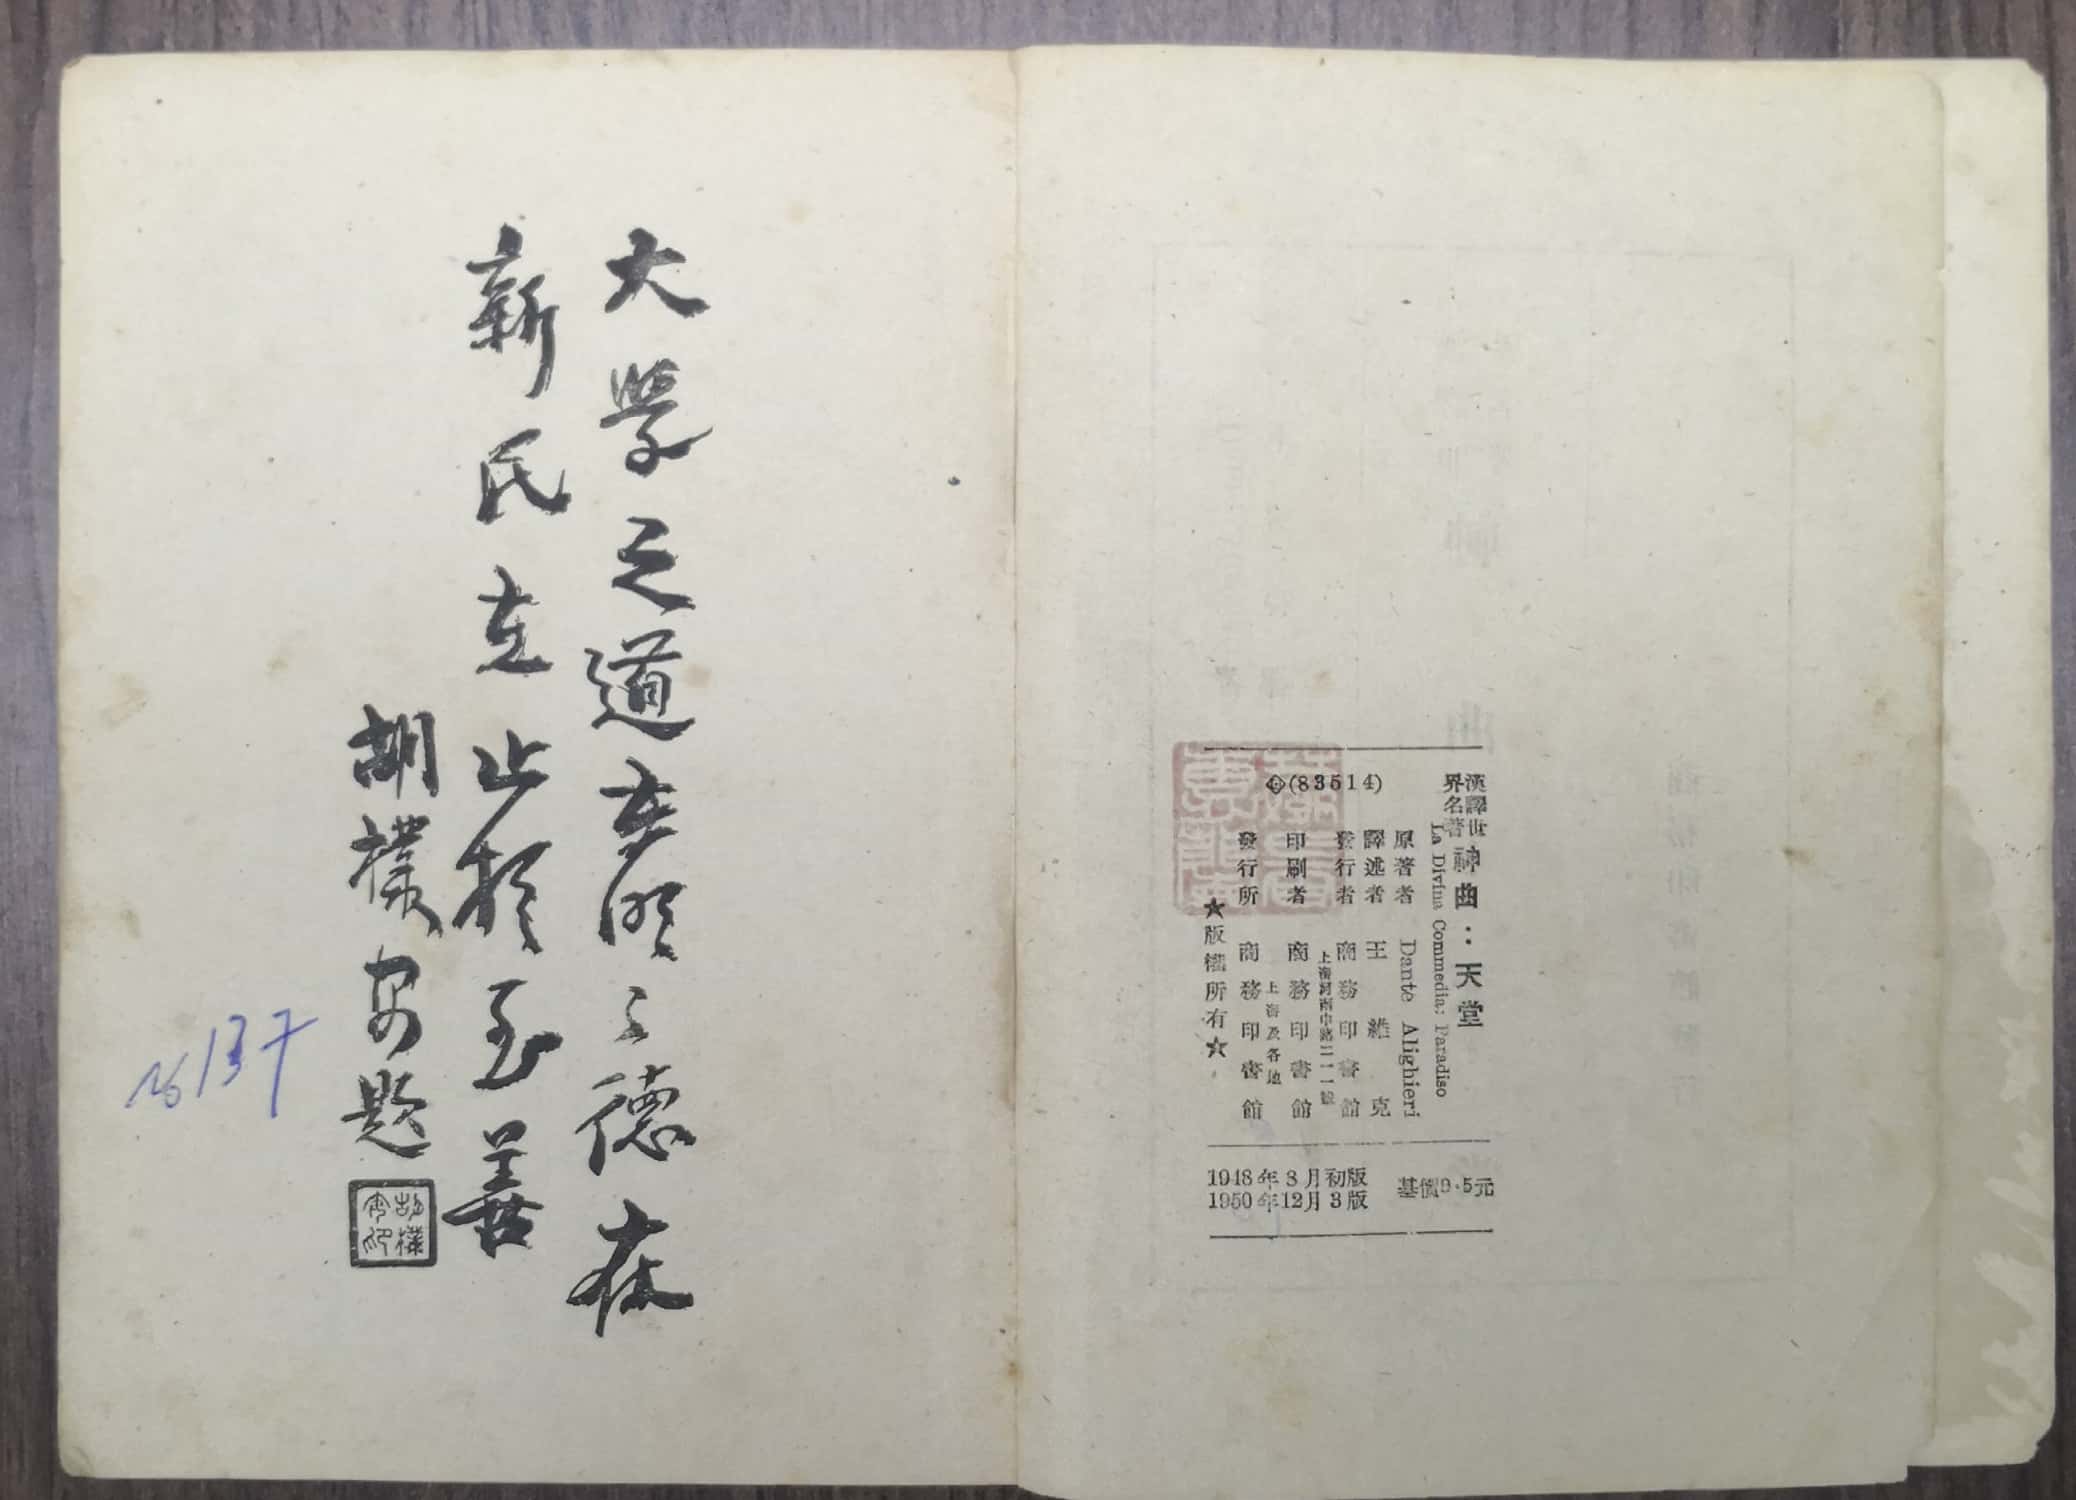 大學之道在明明德在
新民在止於至善
胡樸安題
胡樸安印
漢譯世界名著
神曲：天堂
La Divina Commedia: Paradiso
(83514)
原著者 Dante Alighieri
譯述者 王維克
發行者 商務印書館
上海河南中路二一一號
印刷者 商務印書館
上海及各地
發行所 商務印書館
★版權所有☆
1948年3月初版
1950年12月3版
基價9.5元